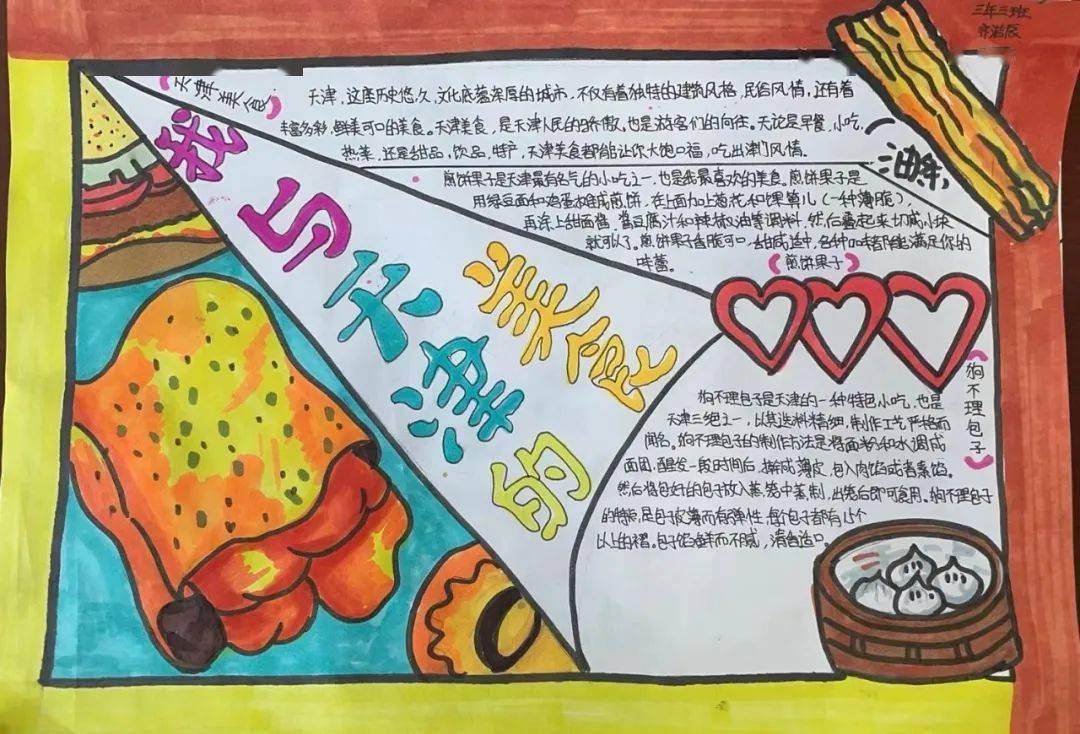 三年三班
天津美食
我与天津的美食
天津,这座历史悠久,文化底蕴深厚的城市,不仅有着独特的建筑风格,民俗风情,还有着
丰富多彩,鲜美可口的美食。天津美食,是天津人民的骄傲,也是游客们的向往。无论是早餐,小吃,
热菜,还是甜品,饮品,特产,天津美食都能让你大饱口福,吃出津门风情。
油条
煎饼果子是天津最有名气的小吃之一,也是我最喜欢的美食。煎饼果子是
用绿豆面和鸡蛋摊成煎饼,在上面加上葱花和馃箅儿(一种薄脆),
再涂上甜面酱,酱豆腐汁和辣椒油等调料,然后叠起来切成小块
就可以了。煎饼果子香脆可口,咸适中,各种口味都能满足你的
味蕾。
煎饼果子
狗不理包子
狗不理包子是天津的一种特色小吃,也是
天津三绝之一,以其选料精细,制作工艺严格而
闻名。狗不理包子的制作方法是将面粉和水调成
面团,醒发一段时间后,擀成薄皮,包入肉馅或者素馅。
然后将包好的包子放入蒸笼中蒸制,出笼后即可食用。狗不理包子
的特点是包子皮薄而有弹性,每个包子都有15个
以上的褶。包子馅鲜而不腻,清香适口。